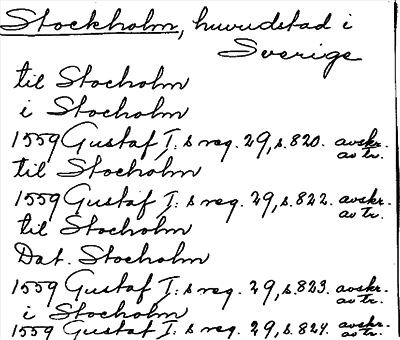 Stockholm, huvudstad i
Sverige
til Stocholm
i Stocholm
1559 Gustaf I:s reg. 29, s. 820. avskr. av tr.
til Stocholm
1559 Gustaf I:s reg. 29, s. 822. avskr. av tr.
til Stocholm
Dat. Stocholm
1559 Gustaf I:s reg. 29, s. 823. avskr. av tr.
i Stocholm
1559 Gustaf I:s reg. 29, s. 824. avskr. av tr.